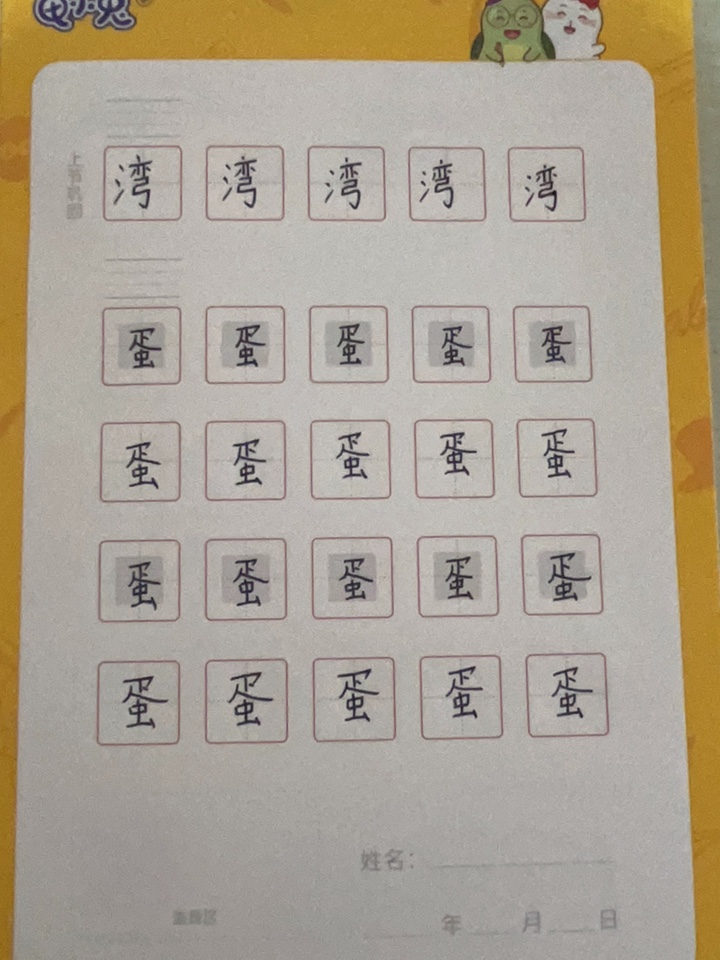 湾 湾 湾 湾 湾
蛋 蛋 蛋 蛋 蛋
蛋 蛋 蛋 蛋 蛋
蛋 蛋 蛋 蛋 蛋
蛋 蛋 蛋 蛋 蛋
姓名:
年 月 日